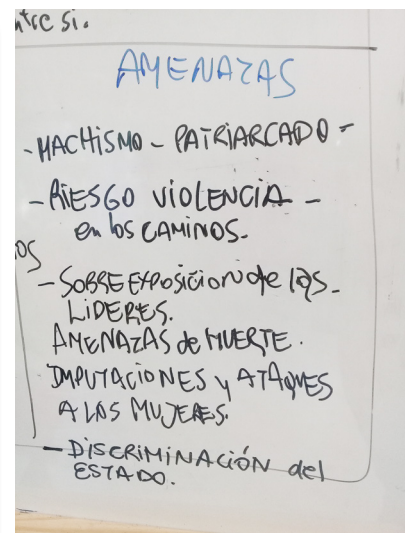 ntre si.
AMENAZAS
- MACHISMO - PATRIARCADO -
- RIESGO VIOLENCIA -
en los CAMINOS.
OS
- SOBREEXPOSICION de las -
LIDERES.
AMENAZAS de MUERTE.
IMPUTACIONES y ATAQUES
A LAS MUJERES.
- DISCRIMINACIÓN del
ESTADO.